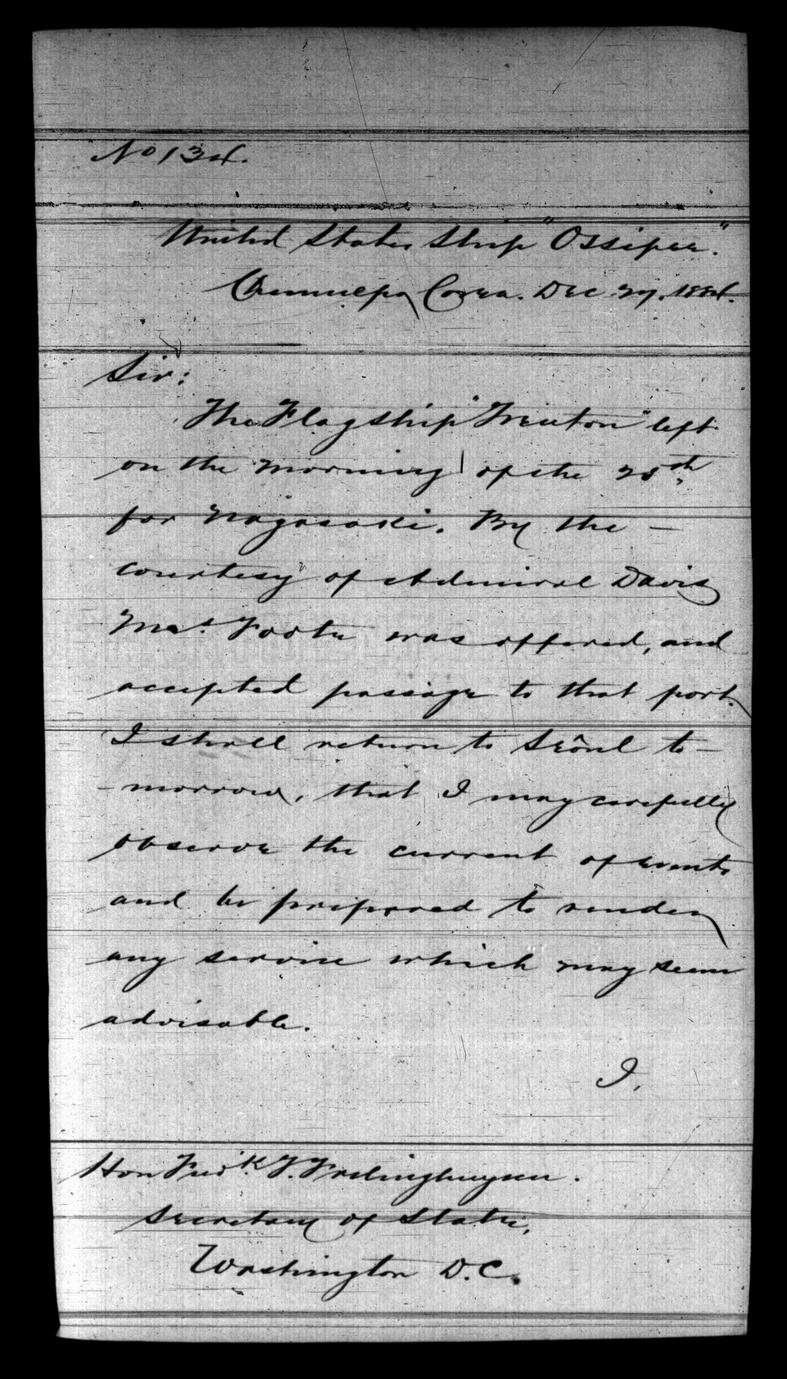 No 134.
United States Ship "Ossipee."
Chemulpo, Corea. Dec 27. 1884.
Sir:
The Flagship "Trenton" left
on the morning of the 25th
for Nagasaki. By the —
courtesy of Admiral Davis
Mrs. Foote was offered, and
accepted passage to that port.
I shall return to Seôul to-
-morrow, that I may carefully
observe the current of events
and be prepared to render
any service which may seem
advisable.
I.
Hon Fred'k. T. Frelinghuysen.
Secretary of State,
Washington D.C.